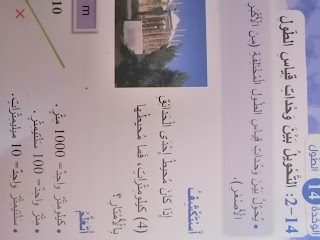 الوحدة 14 الطول
14-2: التَّحْوِيلُ بَيْنَ وَحَدَاتِ قِيَاسِ الطُّولِ
• يُحَوِّلُ بَيْنَ وَحَدَاتِ قِيَاسِ الطُّولِ الْمُخْتَلِفَةِ (مِنَ الْأَكْبَرِ
لِلْأَصْغَرِ).
أَسْتَكْشِفُ
إِذَا كَانَ مُحِيطُ إِحْدَى الْحَدَائِقِ
(4) كِيلُومِتْرَاتٍ، فَمَا مُحِيطُهَا
بِالْأَمْتَارِ؟
أَتَعَلَّمُ
• كِيلُومِتْرٌ وَاحِدٌ = 1000 مِتْرٍ.
• مِتْرٌ وَاحِدٌ = 100 سَنْتِيمِتْرٍ.
• سَنْتِيمِتْرٌ وَاحِدٌ = 10 مِيلِيمِتْرَاتٍ.
m
10
×